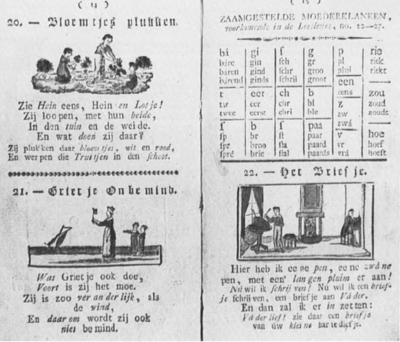 ( 14 )
20. — Bloemtjes plukken.
Zie Hein eens, Hein en Lotje!
Zij loopen, met hun beide,
In den tuin en de weide.
En wat doen zij daar?
Zij plukken daar bloemtjes, wit en rood,
En werpen die Truitjen in den schoot.
21. — Grietje Onbemind.
Was Grietje ook doe,
Voort is zij het moe.
Zij is zoo veranderlijk, als
de wind,
En daarom wordt zij ook
niet bemind.
( 15 )
ZAAMGESTELDE MOEDERKLANKEN,
voorkomende in de Leesles, no. 12—27.
bi gi s g p rie
bire gin sch gr pl riek
baren gind schr groot plui riekt
barend ginds schri groo een
t eer ch b eens zou
tw eer chr bl z zoud
twee eers chri blo zw zoudt
f b f paa zwd
sp br st paar v hoe
spr broo sta paard vr hoef
spré brie stal paards vrd hoeft
22. — Het Briefje.
Hier heb ik eene pen, eene zwd ne
pen, met een' langen pluim er aan!
Nu wil ik schrijven! Nu wil ik een brief-
je schrijven, een briefje aan Váder.
En dan zal ik er in zetten:
Váder lief! zie daar een briefje
van úw kleine hartediefje.